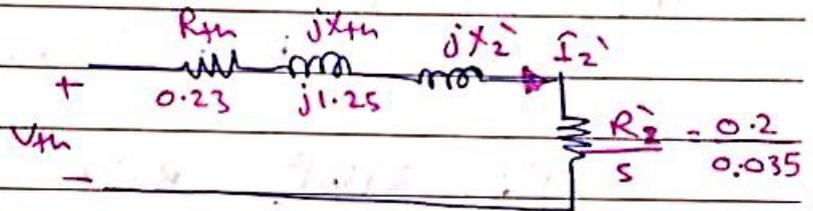 Rth jXth jX2' I2'
+ 0.23 j1.25
Vth R2' - 0.2
- S 0.035